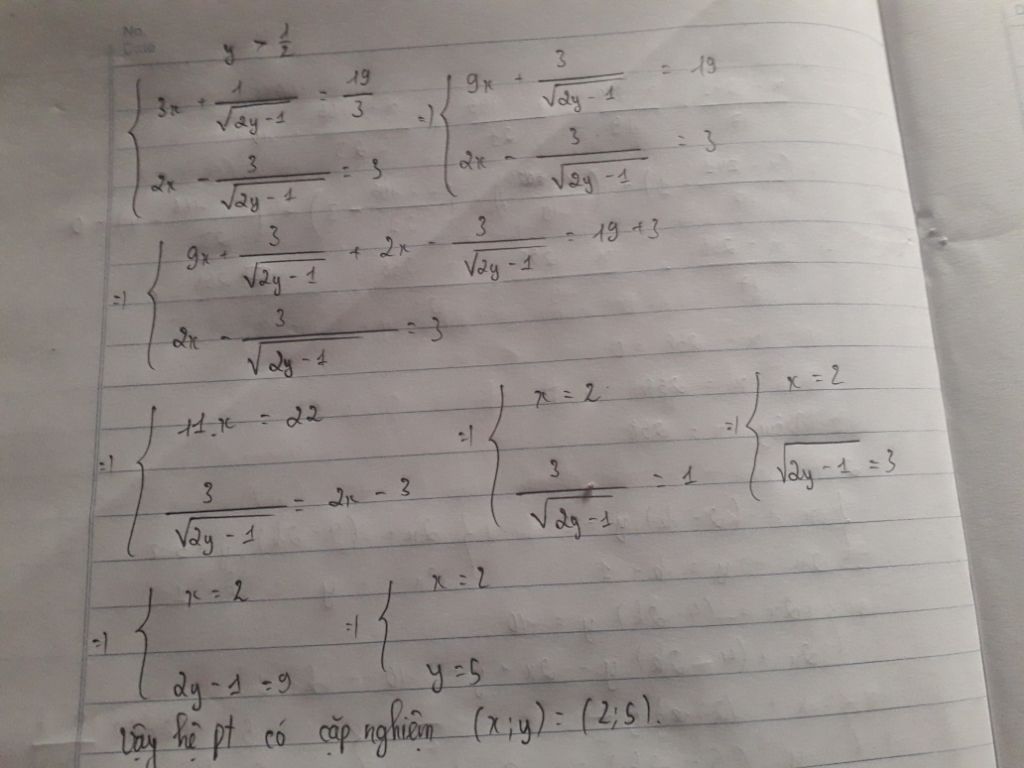 No.
Date
y > 1/2
{ 3x + 1/√(2y-1) = 19/3 => { 9x + 3/√(2y-1) = 19
2x - 3/√(2y-1) = 3 2x - 3/√(2y-1) = 3
=> { 9x + 3/√(2y-1) + 2x - 3/√(2y-1) = 19 + 3
2x - 3/√(2y-1) = 3
=> { 11.x = 22 => { x = 2 => { x = 2
3/√(2y-1) = 2x - 3 3/√(2y-1) = 1 √(2y-1) = 3
=> { x = 2 => { x = 2
2y - 1 = 9 y = 5
Vậy hệ pt có cặp nghiệm (x;y) = (2;5).